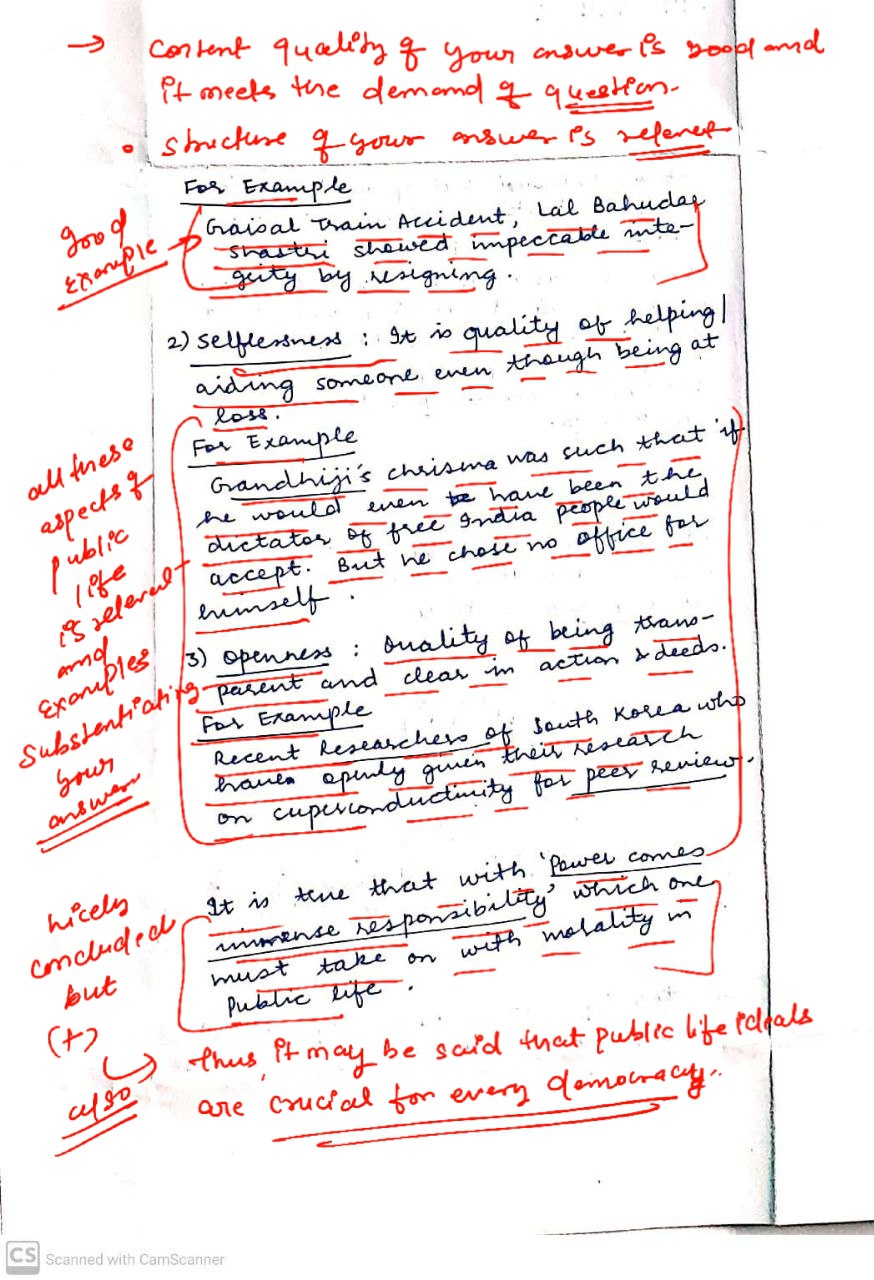 → Content quality of your answer is good and
it meets the demand of question.
• Structure of your answer is relevant
For Example
Gaisal Train Accident, Lal Bahudar
Shastri showed impeccable inte-
grity by resigning.
good
example
2) Selflessness : It is quality of helping/
aiding someone even though being at
loss.
For Example
Grandhiji's chrisma was such that 'if
he would even be have been the
dictator of free India people would
accept. But he chose no office for
himself.
3) Openness : Quality of being trans-
parent and clear in action & deeds.
For Example
Recent Researchers of South Korea who
have openly given their research
on cuperconductivity for peer review.
all these
aspects of
public
life
is relevant
and
Examples
Substentiating
your
answer
It is true that with 'Power comes
immense responsibility' which one
must take on with morality in
Public life.
nicely
concluded
but
(+)
also
Thus, it may be said that public life ideals
are crucial for every democracy.
CS Scanned with CamScanner